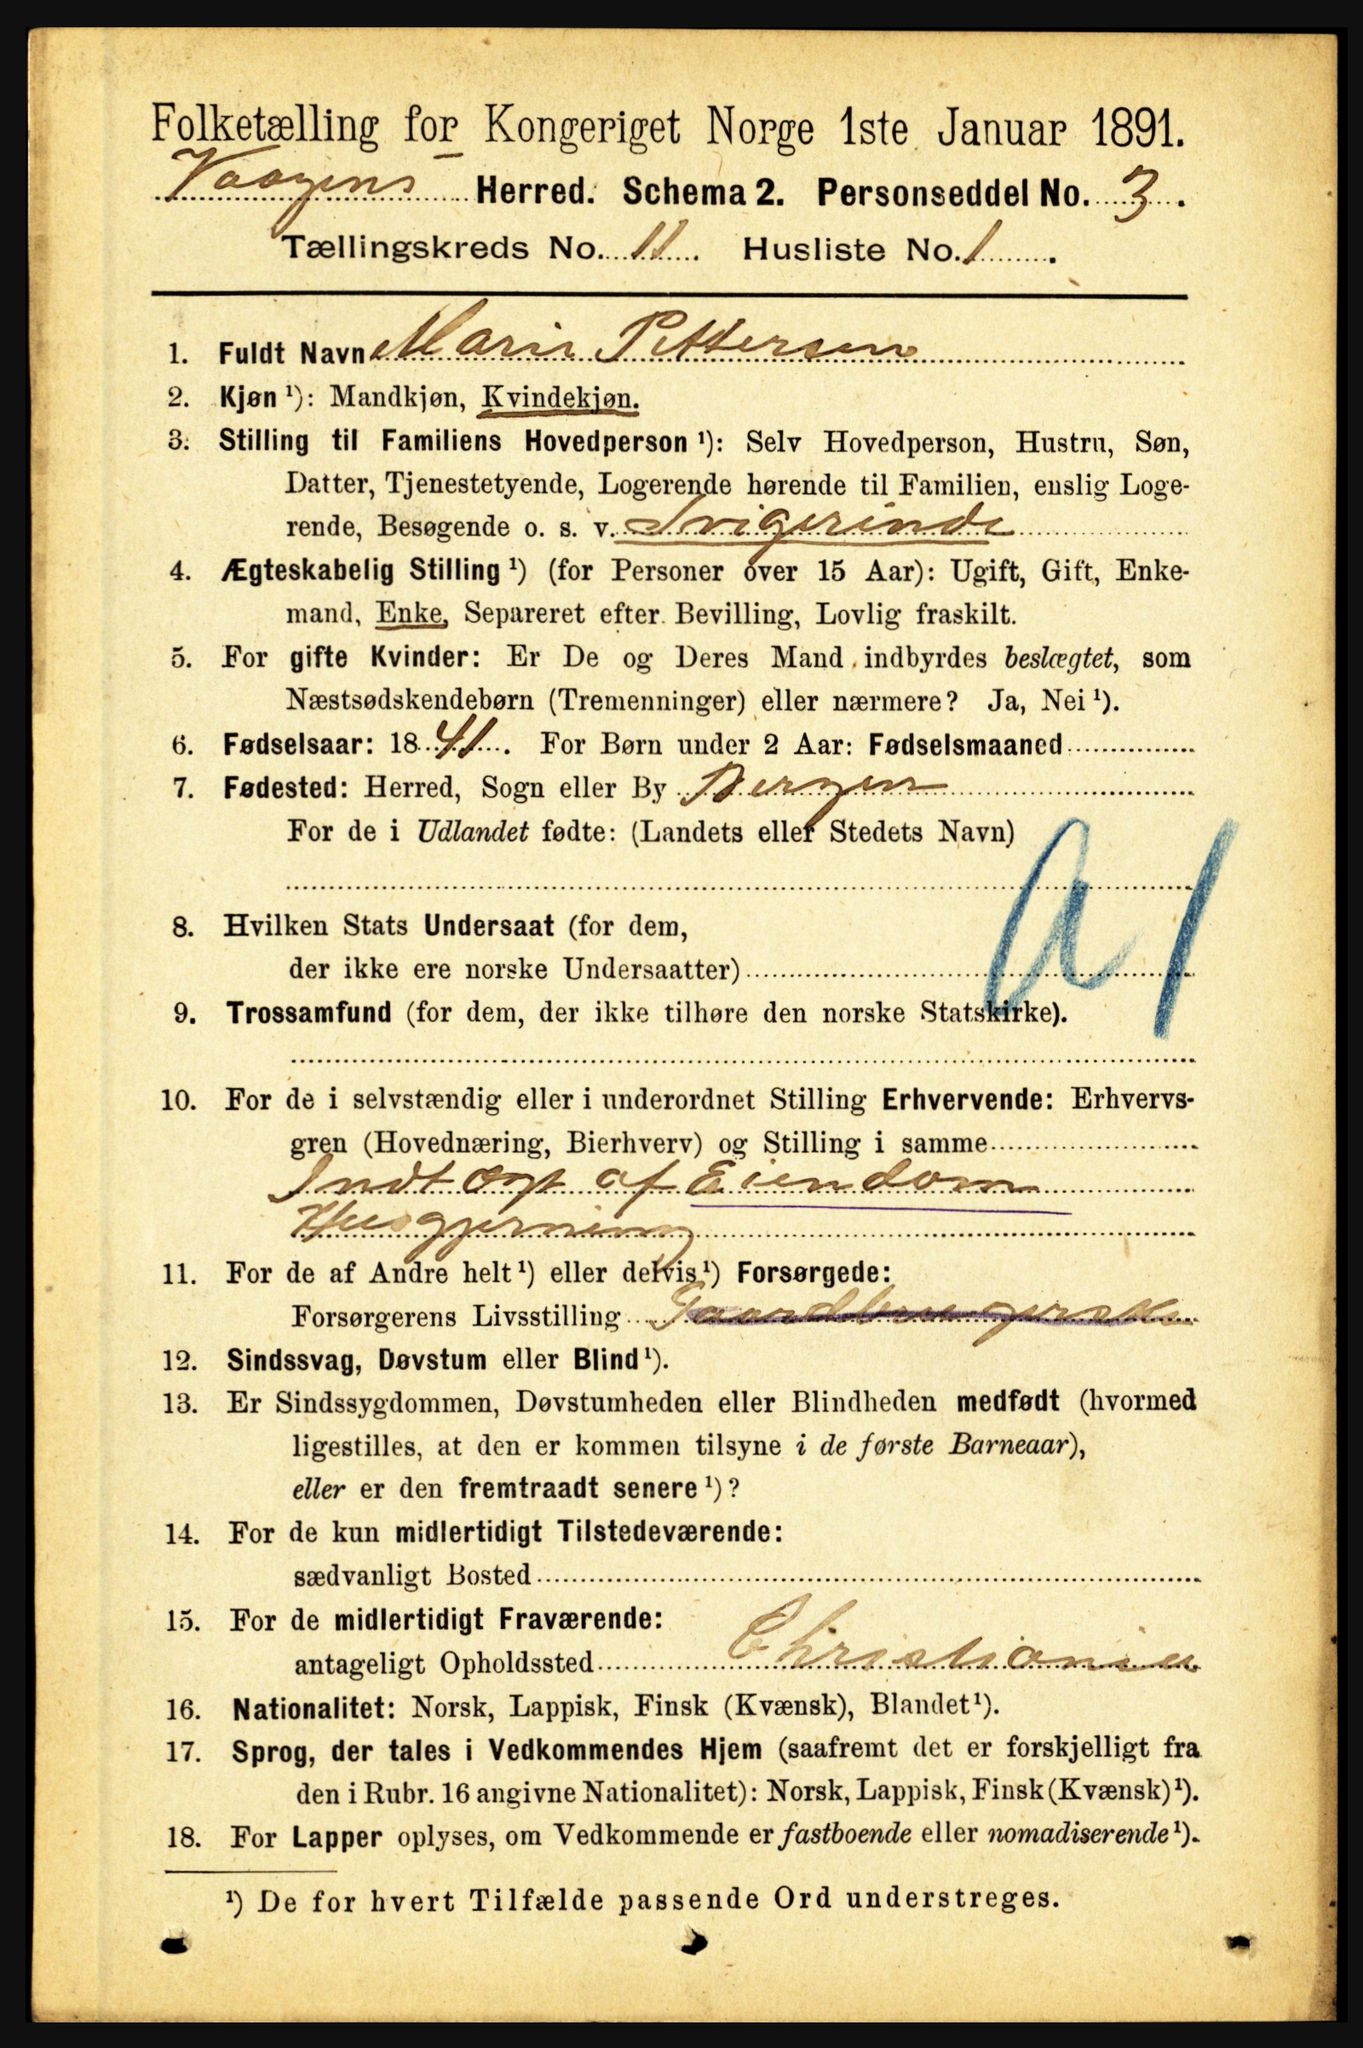 Folketælling for Kongeriget Norge 1ste Januar 1891.
Vaagens Herred. Schema 2. Personseddel No. 3.
Tællingskreds No. 11. Husliste No. 1.
1. Fuldt Navn Marie Pettersen
2. Kjøn ¹): Mandkjøn, Kvindekjøn.
3. Stilling til Familiens Hovedperson ¹): Selv Hovedperson, Hustru, Søn,
Datter, Tjenestetyende, Logerende hørende til Familien, enslig Loge-
rende, Besøgende o. s. v. Svigerinde
4. Ægteskabelig Stilling ¹) (for Personer over 15 Aar): Ugift, Gift, Enke-
mand, Enke, Separeret efter Bevilling, Lovlig fraskilt.
5. For gifte Kvinder: Er De og Deres Mand indbyrdes beslægtet, som
Næstsødskendebørn (Tremenninger) eller nærmere? Ja, Nei ¹).
6. Fødselsaar: 1841. For Børn under 2 Aar: Fødselsmaaned
7. Fødested: Herred, Sogn eller By Bergen
For de i Udlandet fødte: (Landets eller Stedets Navn)
A1
8. Hvilken Stats Undersaat (for dem,
der ikke ere norske Undersaatter)
9. Trossamfund (for dem, der ikke tilhøre den norske Statskirke).
10. For de i selvstændig eller i underordnet Stilling Erhvervende: Erhvervs-
gren (Hovednæring, Bierhverv) og Stilling i samme
Indtægt af Eiendom
Husgjerning
11. For de af Andre helt ¹) eller delvis ¹) Forsørgede:
Forsørgerens Livsstilling Gaardbrugerske
12. Sindssvag, Døvstum eller Blind ¹).
13. Er Sindssygdommen, Døvstumheden eller Blindheden medfødt (hvormed
ligestilles, at den er kommen tilsyne i de første Barneaar),
eller er den fremtraadt senere ¹)?
14. For de kun midlertidigt Tilstedeværende:
sædvanligt Bosted
15. For de midlertidigt Fraværende:
antageligt Opholdssted Christiania
16. Nationalitet: Norsk, Lappisk, Finsk (Kvænsk), Blandet ¹).
17. Sprog, der tales i Vedkommendes Hjem (saafremt det er forskjelligt fra
den i Rubr. 16 angivne Nationalitet): Norsk, Lappisk, Finsk (Kvænsk) ¹).
18. For Lapper oplyses, om Vedkommende er fastboende eller nomadiserende ¹).
¹) De for hvert Tilfælde passende Ord understreges.